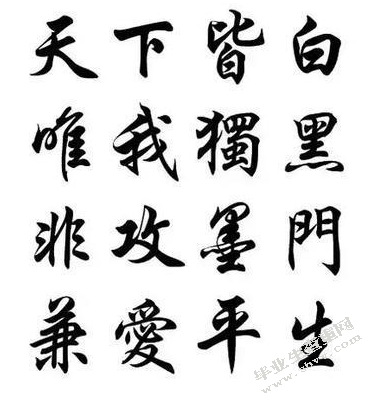 天下皆白
唯我獨黑
非攻墨門
兼愛平生
毕业生百宝网